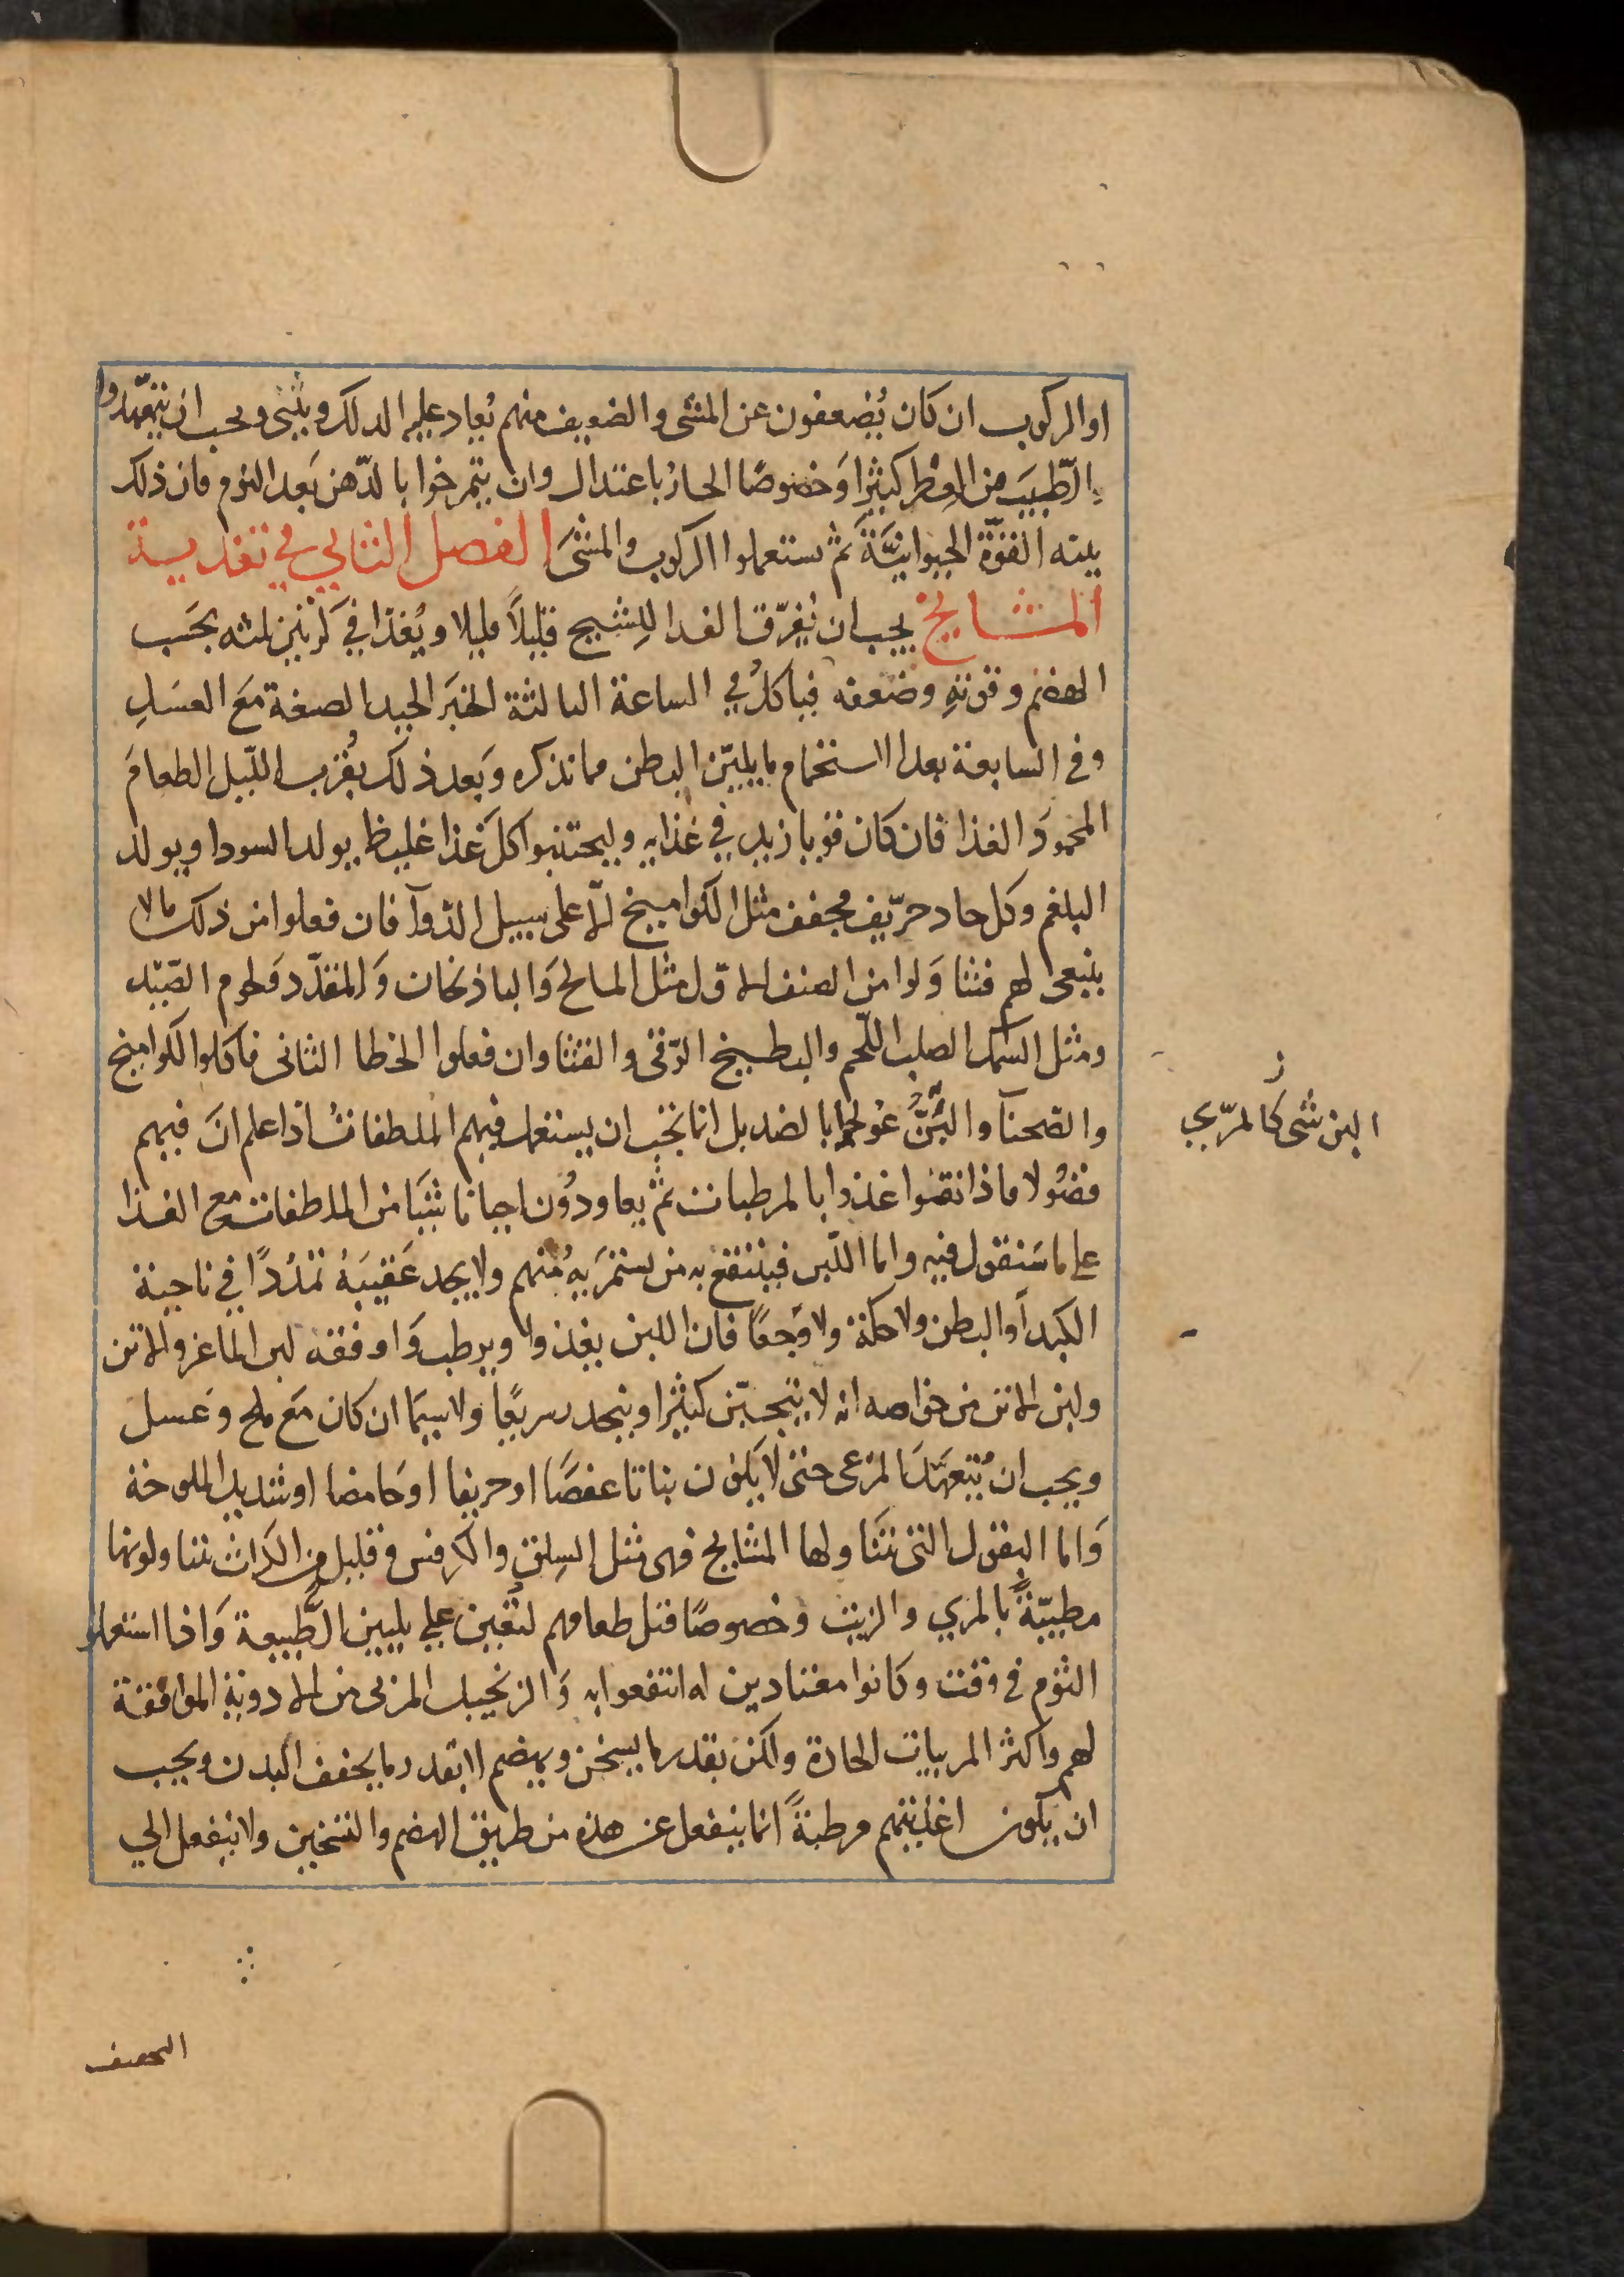 او الركوب ان كان يُضعفون عن المشى والضعيف منهم يُعاد عليه الدلك ويثنى ويجب ان يتعهّدوا
الطّيبَ من العِطر كثيرًا وَخصوصًا الحارّ باعتدال وان يتمرخوا بالدّهن بَعد النوم فان ذلك
ينبه القوّة الحيوانيَّةَ ثم يستعملوا الركوب والمشىَ الفصل الثاني في تغدية
المشايخ يجب ان يُفرّق الغدا للِشيخ قليلاً قليلا ويُغذا في كرتين او ثلثه بحَسب
الهضم وقوتهِ وضعفه فياكلُ في الساعة الثالثة الخبزَ الجيد الصنعة مَعَ العسَلِ
وفي السابعة بعد الاستحمام ما يليّن البطن مما نذكره وَبَعد ذلك بقُرب الليل الطعامَ
المحمودَ الغذا فان كان قويا زيد في غذايه وليجتنبوا كلَ غذا غليظ يولد السودا ويولد
البلغم وكل حاد حرّيف مجفف مثل الكواميخ الّا على سبيل الدّوآ فان فعلوا من ذلك ما لا
ينبغى لهم فتناوَلوا من الصنف الاوّل مثل المالح وَالباذنجان وَالمقدّد ولحوم الصّيد
ومثل السمك الصلب اللّحم والبطيخ الرّقى والقثا وان فعلوا الخطا الثانى فاكلوا الكواميخ
والصّحنآ والبُنّ عُولجوا بالضد بل انما يجب ان يستعمل فيهم الملطفات اذا علم انَ فيهم
فضُولا فاذا نقوا غذوا بالمرطبات ثم يعاودُون احيانا شيَا من الملطفات مع الغذا
على ما سَنقول فيه واما اللّبن فينتفع به من يستمرَيه مُنهم ولا يجد عَقيبَهُ تمدُدًا في ناحية
الكبد أو البطن ولا حكة ولا وَجعًا فان اللبن يغذوا ويرطب وَاوفقه لبن الماعز والاتن
ولبن الاتن من خواصه انه لا يتجبّن كثيرا وينحدر سريعًا ولا سيمَا ان كان مَع ملح وعسل
ويجب ان يُتعهّدَ المرعى حتى لا يَكون نباتا عفصًا او حريفا او حَامضا او شديد الملوحة
وَاما البقول التى تتناولها المشايخ فهى مثل السِلق والكرفس وقليل من الكراث يتناولونها
مطيّبةً بالمري والزيت وخصوصًا قبل طعامهم لتُعين على تليين الطَّبيعة وَاذا استعملوا
الثوم في وقت وكانوا معتادين له انتفعوا به وَالزنجبيل المربى من الادويةِ الموافقة
لهم واكثر المربيات الحارة ولكن بقدر ما يسخن ويهضم لا بقدر ما يجفف البدن ويجب
ان يكون اغذيتهم مرطبةً انما ينفعل عن هذه من طريق الهضم والتسخين ولا ينفعل الى
ز
البن شى كالمرّي
التجفيف